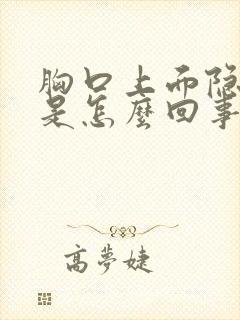 胸口上面隐
是怎麼回事
高夢婕